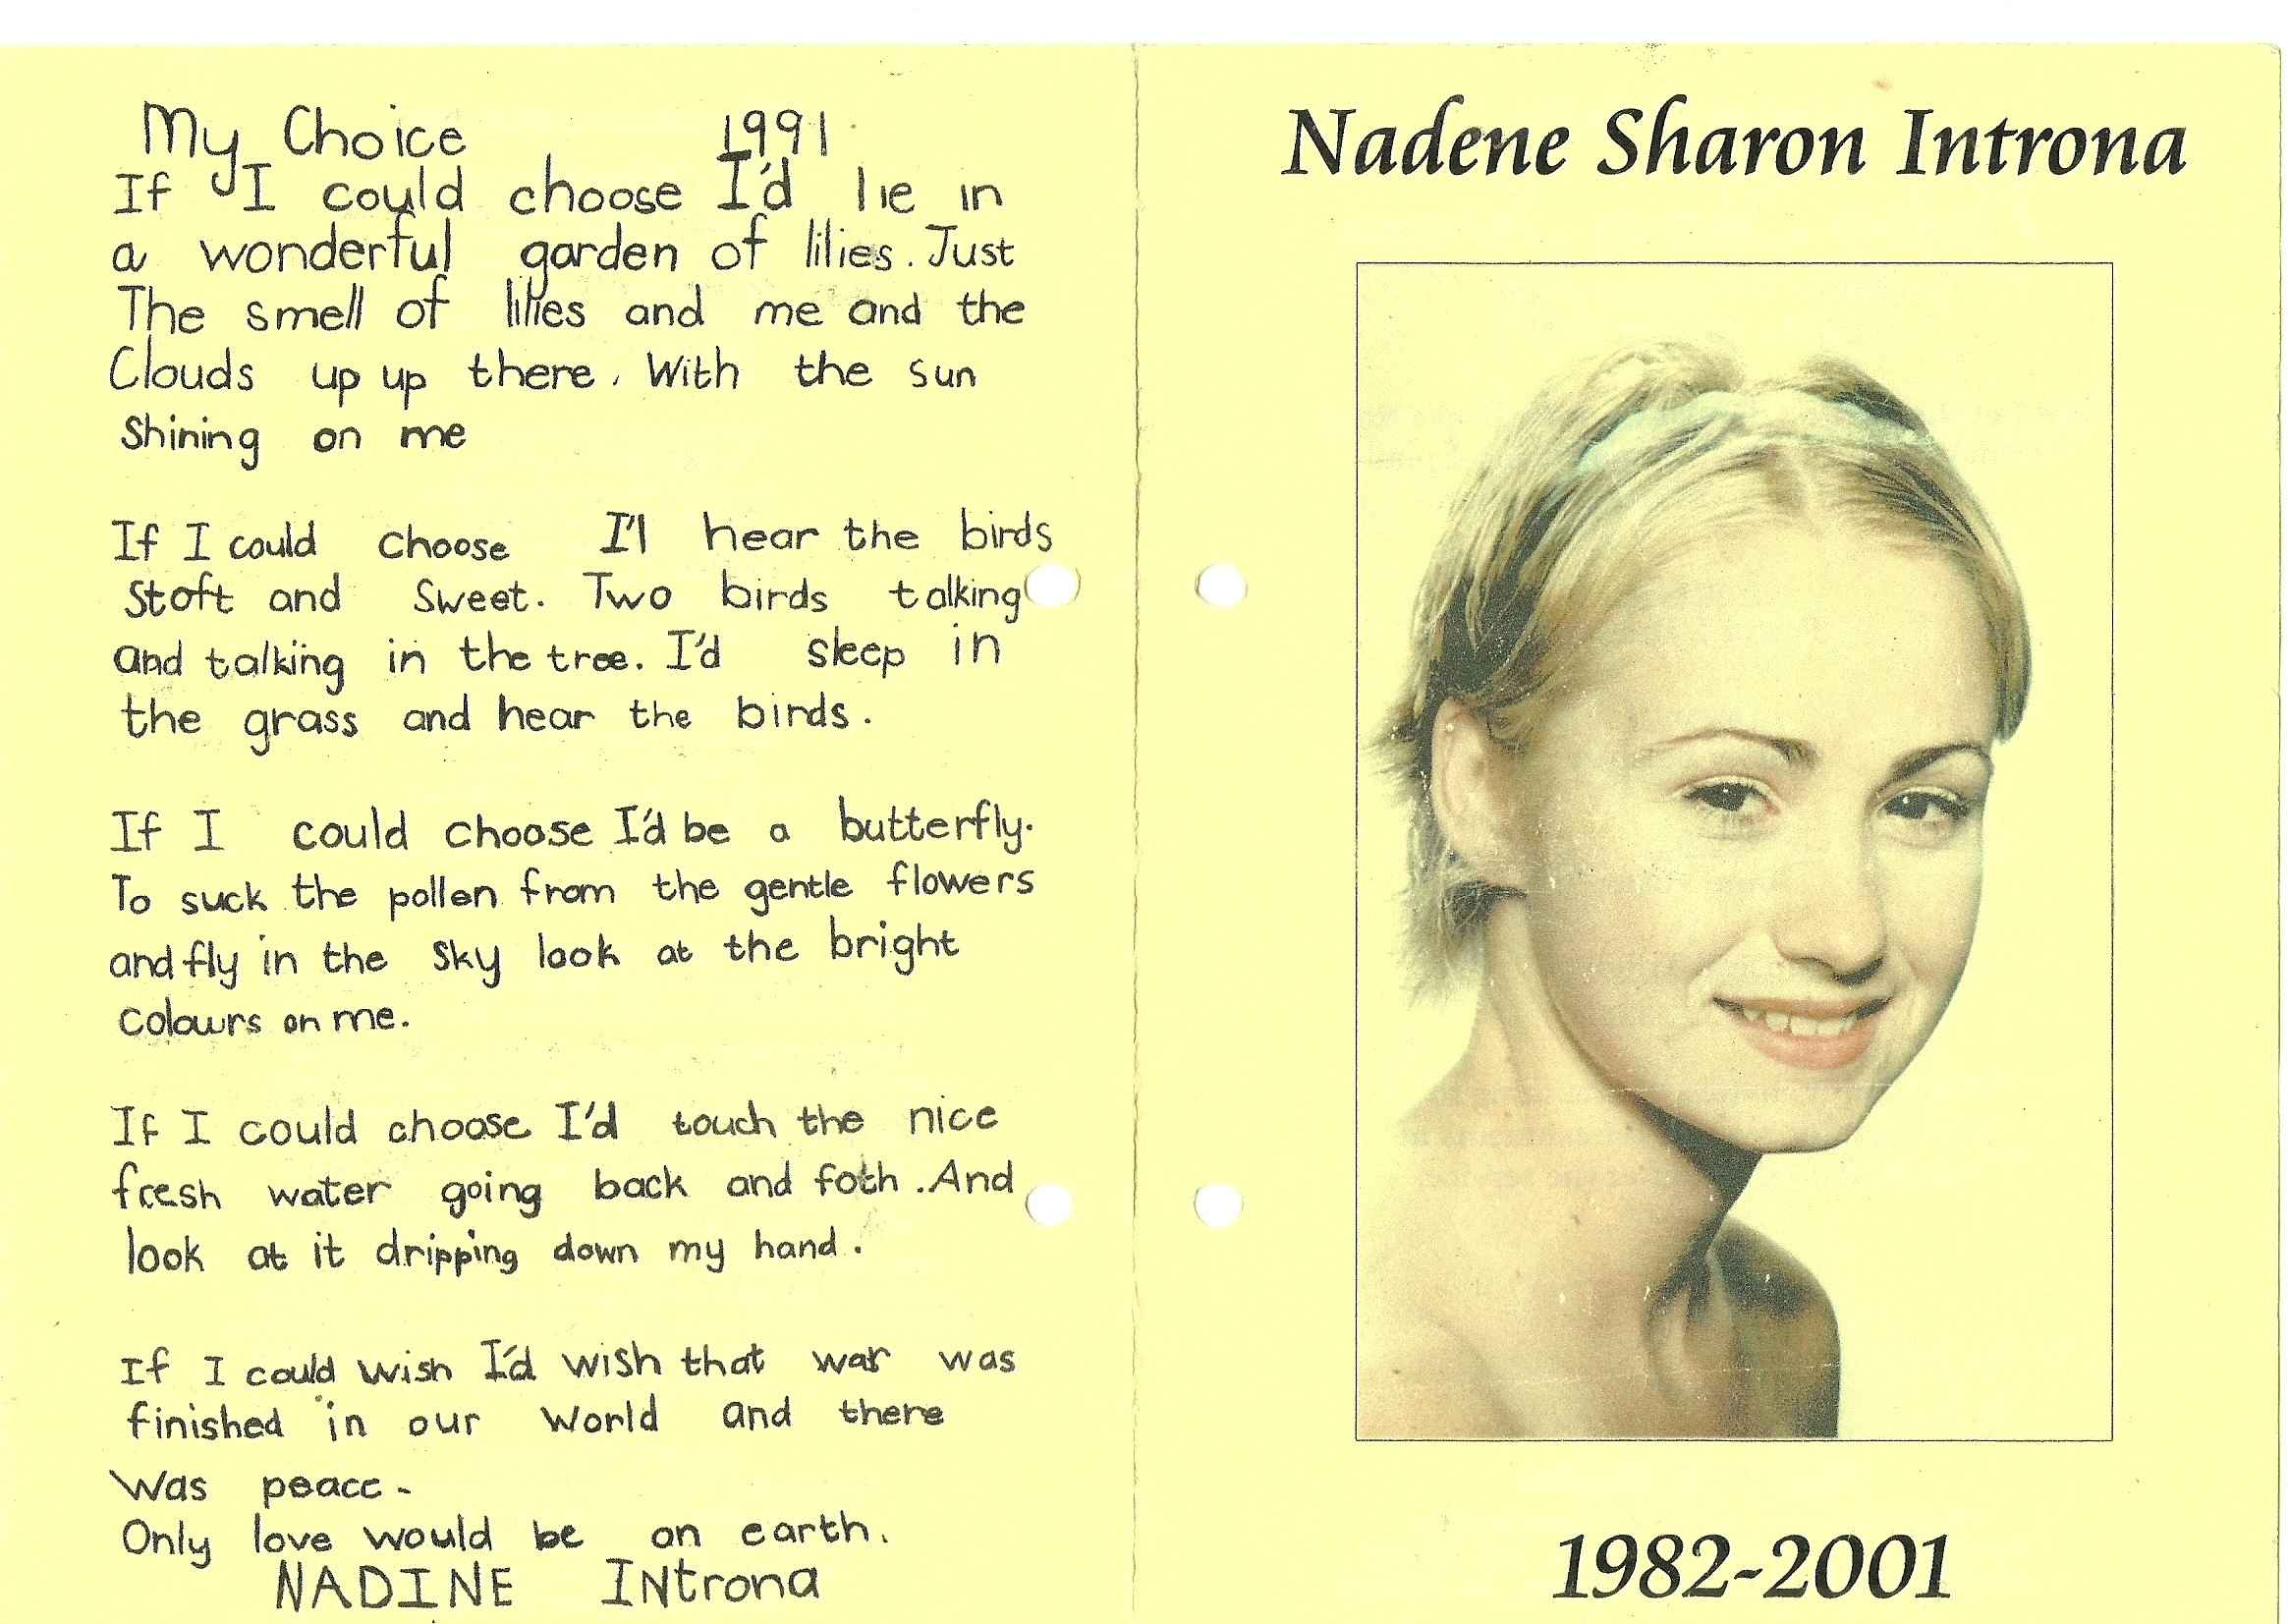 My Choice 1991
If I could choose I'd lie in
a wonderful garden of lilies. Just
The smell of lilies and me and the
Clouds up up there. With the sun
Shining on me
If I could choose I'l hear the birds
Stoft and Sweet. Two birds talking
and talking in the tree. I'd sleep in
the grass and hear the birds.
If I could choose I'd be a butterfly.
To suck the pollen from the gentle flowers
and fly in the Sky look at the bright
Colours on me.
If I could choose I'd touch the nice
fresh water going back and foth. And
look at it dripping down my hand.
If I could wish I'd wish that war was
finished in our world and there
Was peace -
Only love would be on earth.
NADINE INtrona
Nadene Sharon Introna
1982-2001